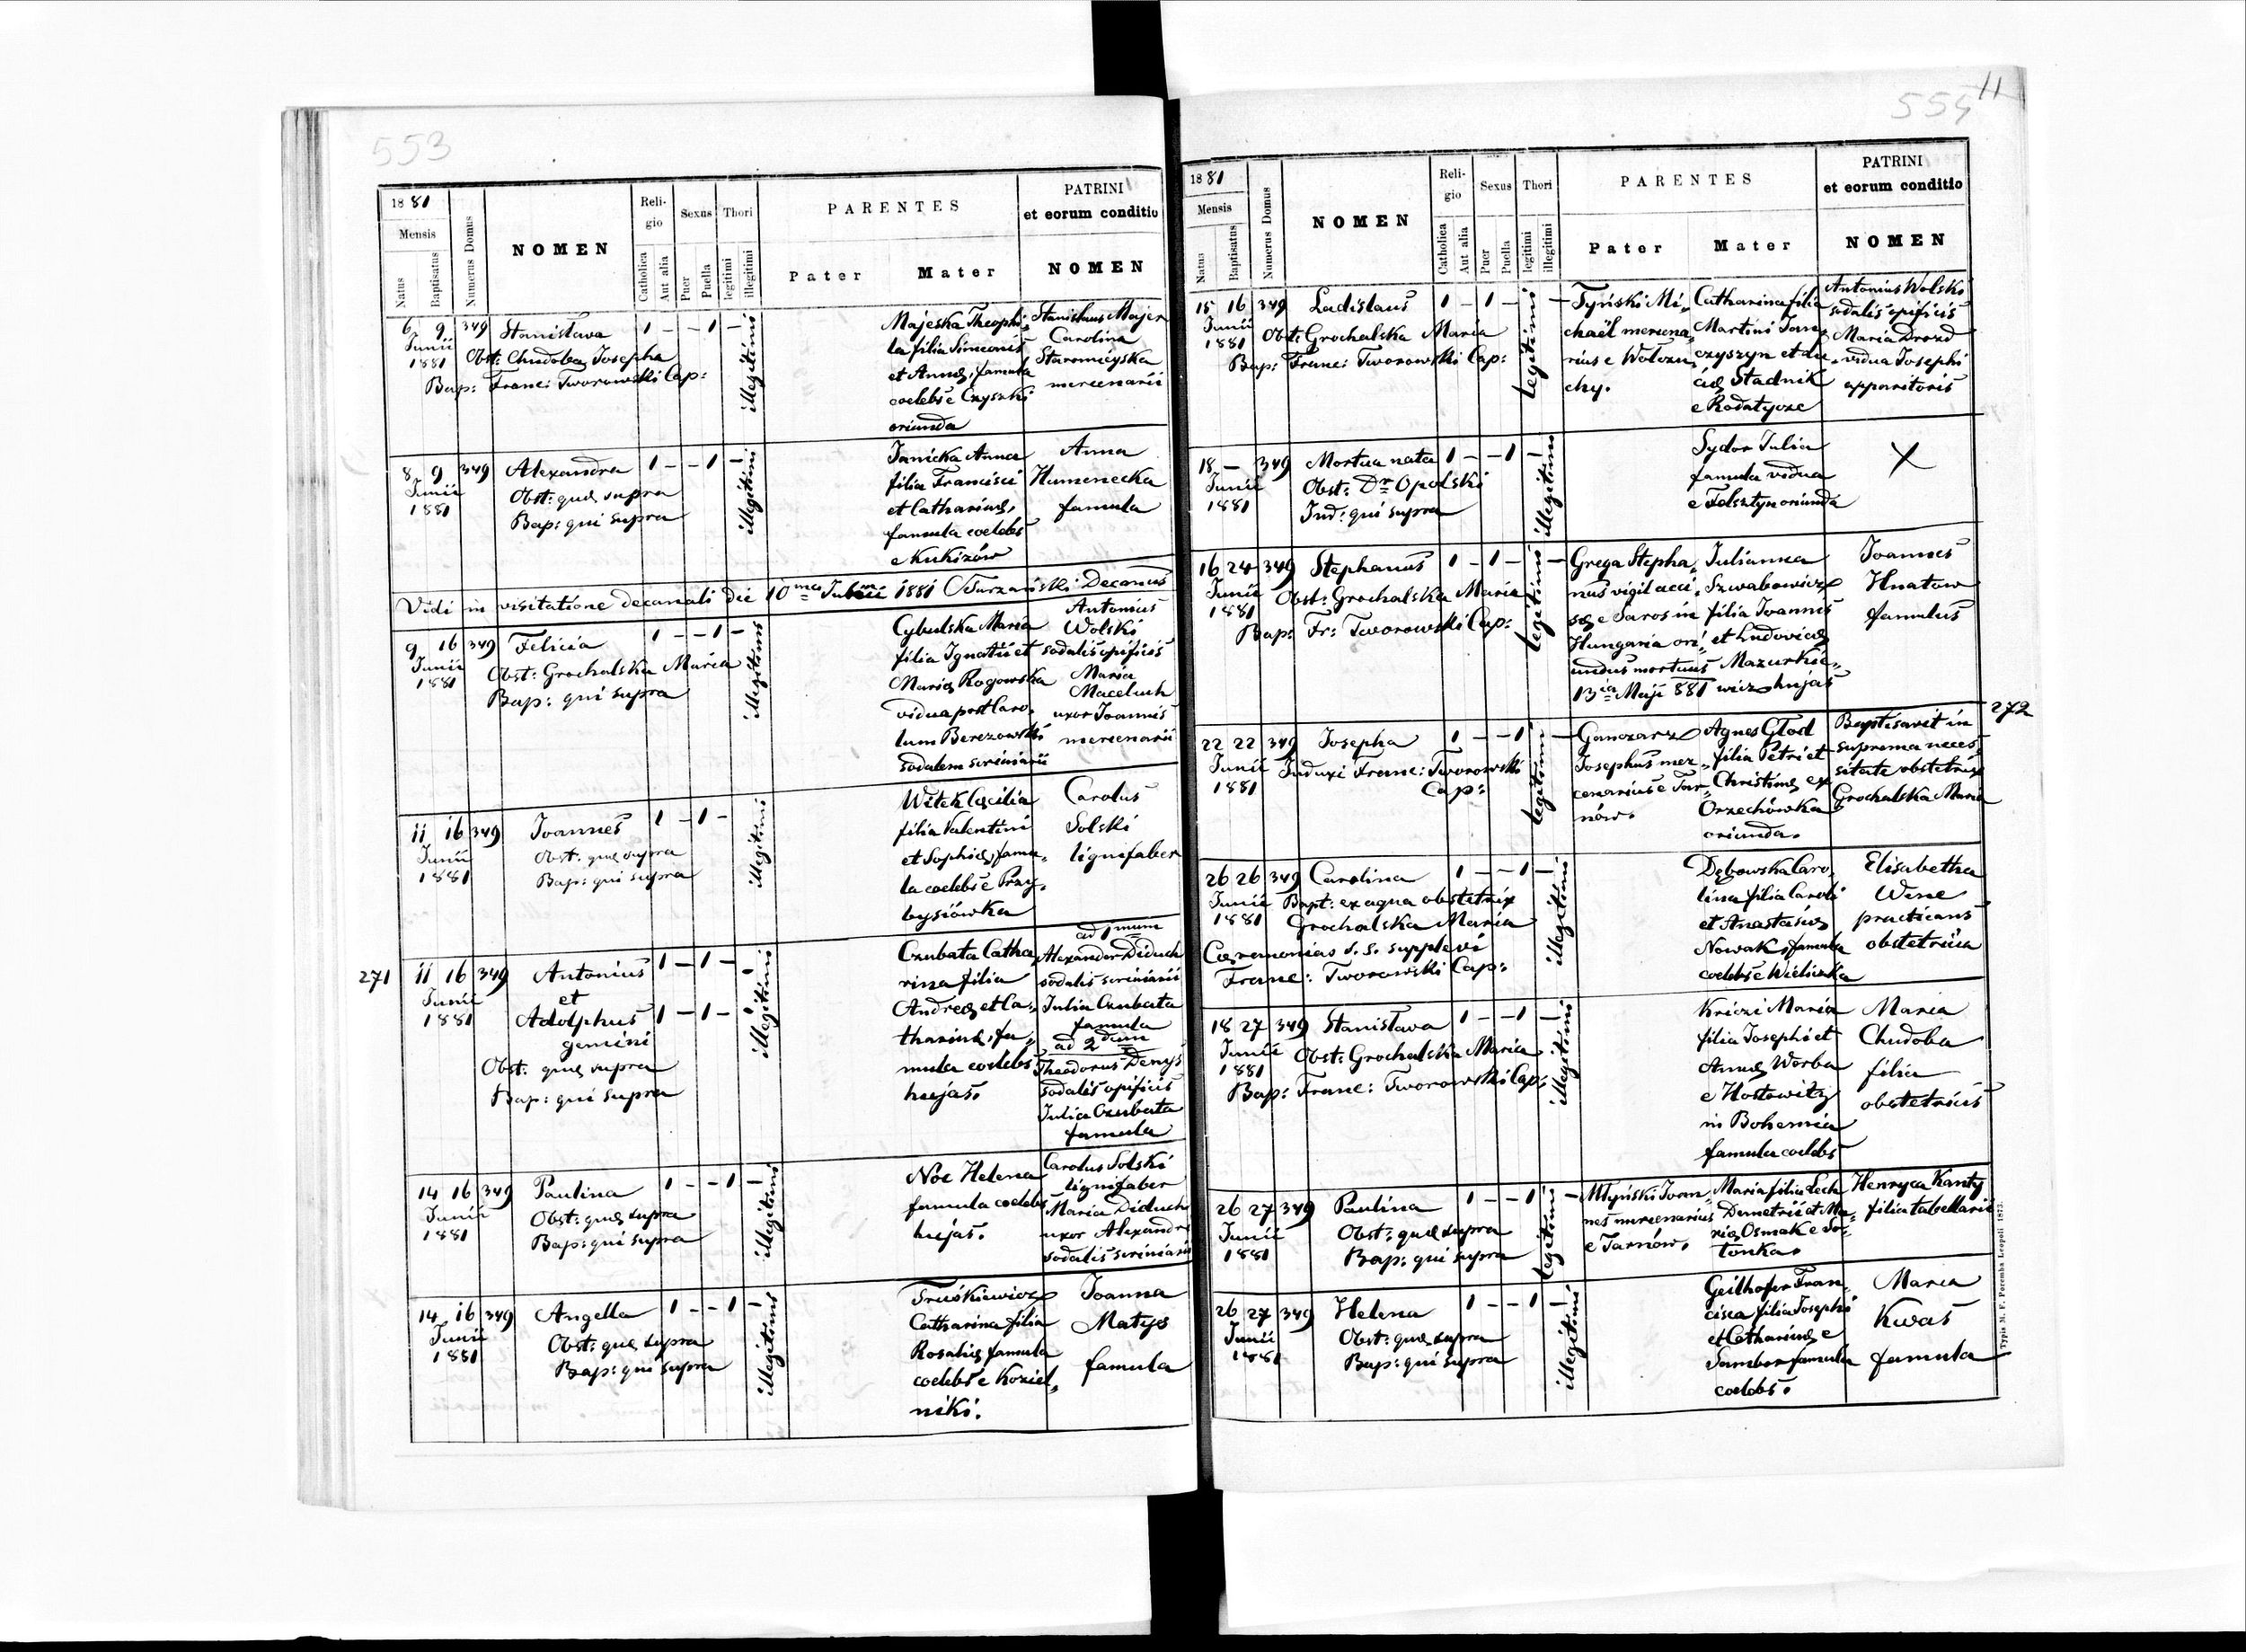 553
1881
Mensis
Natus
Baptisatus
Numerus Domus
NOMEN
Reli-
gio
Catholica
Aut alia
Sexus
Puer
Puella
Thori
legitimi
illegitimi
PARENTES
Pater
Mater
PATRINI
et eorum conditio
NOMEN
6 9 349 Stanisława 1 - - 1 -
Junii
1881
Obst: Chudoba Josepha
Bap: Franc: Tworowski Cap:
illegitimi
Majeska Theophi-
la filia Simeonis
et Annae, famula
coelebs e Czyszki
oriunda
Stanislaus Majer
Carolina
Staromiejska
mercenarii
8 9 349 Alexandra 1 - - 1 -
Junii
1881
Obst: quae supra
Bap: qui supra
illegitimi
Janicka Anna
filia Francisci
et Catharinae,
famula coelebs
e Kukizów
Anna
Humenecka
famula
Vidi in visitatione decanali die 10ma 1881 Decanus
9 16 349 Felicia 1 - - 1 -
Junii
1881
Obst: Grochalska Maria
Bap: qui supra
illegitimi
Cybulska Maria
filia Ignatii et
Mariae Rogowska
vidua post Caro-
lum Berezowski
sodalem scriniarii
Antonius
Wolski
sodalis opificis
Maria
Maceluch
uxor Joannis
mercenarii
11 16 349 Joannes 1 - 1 -
Junii
1881
Obst: quae supra
Bap: qui supra
illegitimi
Witek Caecilia
filia Valentini
et Sophiae, famu-
la coelebs e Przy-
bysiówka
Carolus
Solski
lignifaber
271 11 16 349 Antonius 1 - 1 -
Junii
1881
et
Adolphus 1 - 1 -
gemini
Obst: quae supra
Bap: qui supra
illegitimi
Czubata Catha-
rina filia
Andreae et Ca-
tharinae, fa-
mula coelebs
hujas.
ad 1mum
Alexander Diduch
sodalis scriniarii
Julia Czubata
famula
ad 2dum
Theodorus Denys
sodalis opificis
Julia Czubata
famula
14 16 349 Paulina 1 - - 1 -
Junii
1881
Obst: quae supra
Bap: qui supra
illegitimi
Noe Helena
famula coelebs
hujas.
Carolus Solski
lignifaber
Maria Diduch
uxor Alexandri
sodalis scriniarii
14 16 349 Angella 1 - - 1 -
Junii
1881
Obst: quae supra
Bap: qui supra
illegitimi
Catharina filia
Rosaliae famula
coelebs e Koziel-
niki.
Joanna
Matys
famula
554
11
1881
Mensis
Natus
Baptisatus
Numerus Domus
NOMEN
Reli-
gio
Catholica
Aut alia
Sexus
Puer
Puella
Thori
legitimi
illegitimi
PARENTES
Pater
Mater
PATRINI
et eorum conditio
NOMEN
15 16 349 Ladislaus 1 - 1 - -
Junii
1881
Obst: Grochalska Maria
Bap: Franc: Tworowski Cap:
legitimi
Tyński Mi-
chaël mercena-
rius e Wołczu-
chy.
Catharina filia
Martini Jan-
czyszyn et Lu-
ciae Stadnik
e Rodatycze
Antonius Wolski
sodalis opificis
Maria Drozd
vidua Josephi
apparitoris
18 - 349 Mortua nata 1 - - 1 -
Junii
1881
Obst: Dr Opolski
Ind: qui supra
illegitimi
Sydor Julia
famula vidua
e Felsztyn oriunda
X
16 24 349 Stephanus 1 - 1 - -
Junii
1881
Obst: Grochalska Maria
Bap: Fr: Tworowski Cap:
legitimi
Grega Stepha-
nus vigil acci-
sae e Saros in
Hungaria ori-
undus mortuus
13ia Maji 881
Julianna
Szwabowicz
filia Joannis
et Ludovicae
Mazurkie-
wicz hujas
Joannes
Hnatow
famulus
272
22 22 349 Josepha 1 - - 1 -
Junii
1881
Induxi Franc: Tworowski
Cap:
legitimi
Ganczarz
Josephus mer-
cenarius e Tar-
nów.
Agnes Głod
filia Petri et
Christinae ex
Orzechówka
oriunda.
Baptisavit in
suprema neces-
sitate obstetrix
Grochalska Maria
26 26 349 Carolina 1 - - 1 -
Junii
1881
Bapt: ex aqua obstetrix
Grochalska Maria
Caeremonias S. S. supplevi
Franc: Tworowski Cap:
illegitimi
Dębowska Caro-
lina filia Caroli
et Anastasiae
Nowak, famula
coelebs e Wieliczka
Elisabetha
Wene
practicans
obstetricia
18 27 349 Stanisława 1 - - 1 -
Junii
1881
Obst: Grochalska Maria
Bap: Franc: Tworowski Cap:
illegitimi
Kriczi Maria
filia Josephi et
Annae Worba
e Hostowitz
in Bohemia
famula coelebs
Maria
Chudoba
filia
obstetricis
26 27 349 Paulina 1 - - 1 -
Junii
1881
Obst: quae supra
Bap: qui supra
legitimi
Młyński Joan-
nes mercenarius
e Tarnów.
Maria filia Lech
Demetrii et Ma-
riae Osmak e So-
tonka.
Henryca Kanty
filia tabellarii
26 27 349 Helena 1 - - 1 -
Junii
1881
Obst: quae supra
Bap: qui supra
illegitimi
Geilhofer Fran-
cisca filia Josephi
et Catharinae e
Sambor famula
coelebs.
Maria
Kwas
famula
Typis M. F. Poremba Leopoli 1873.